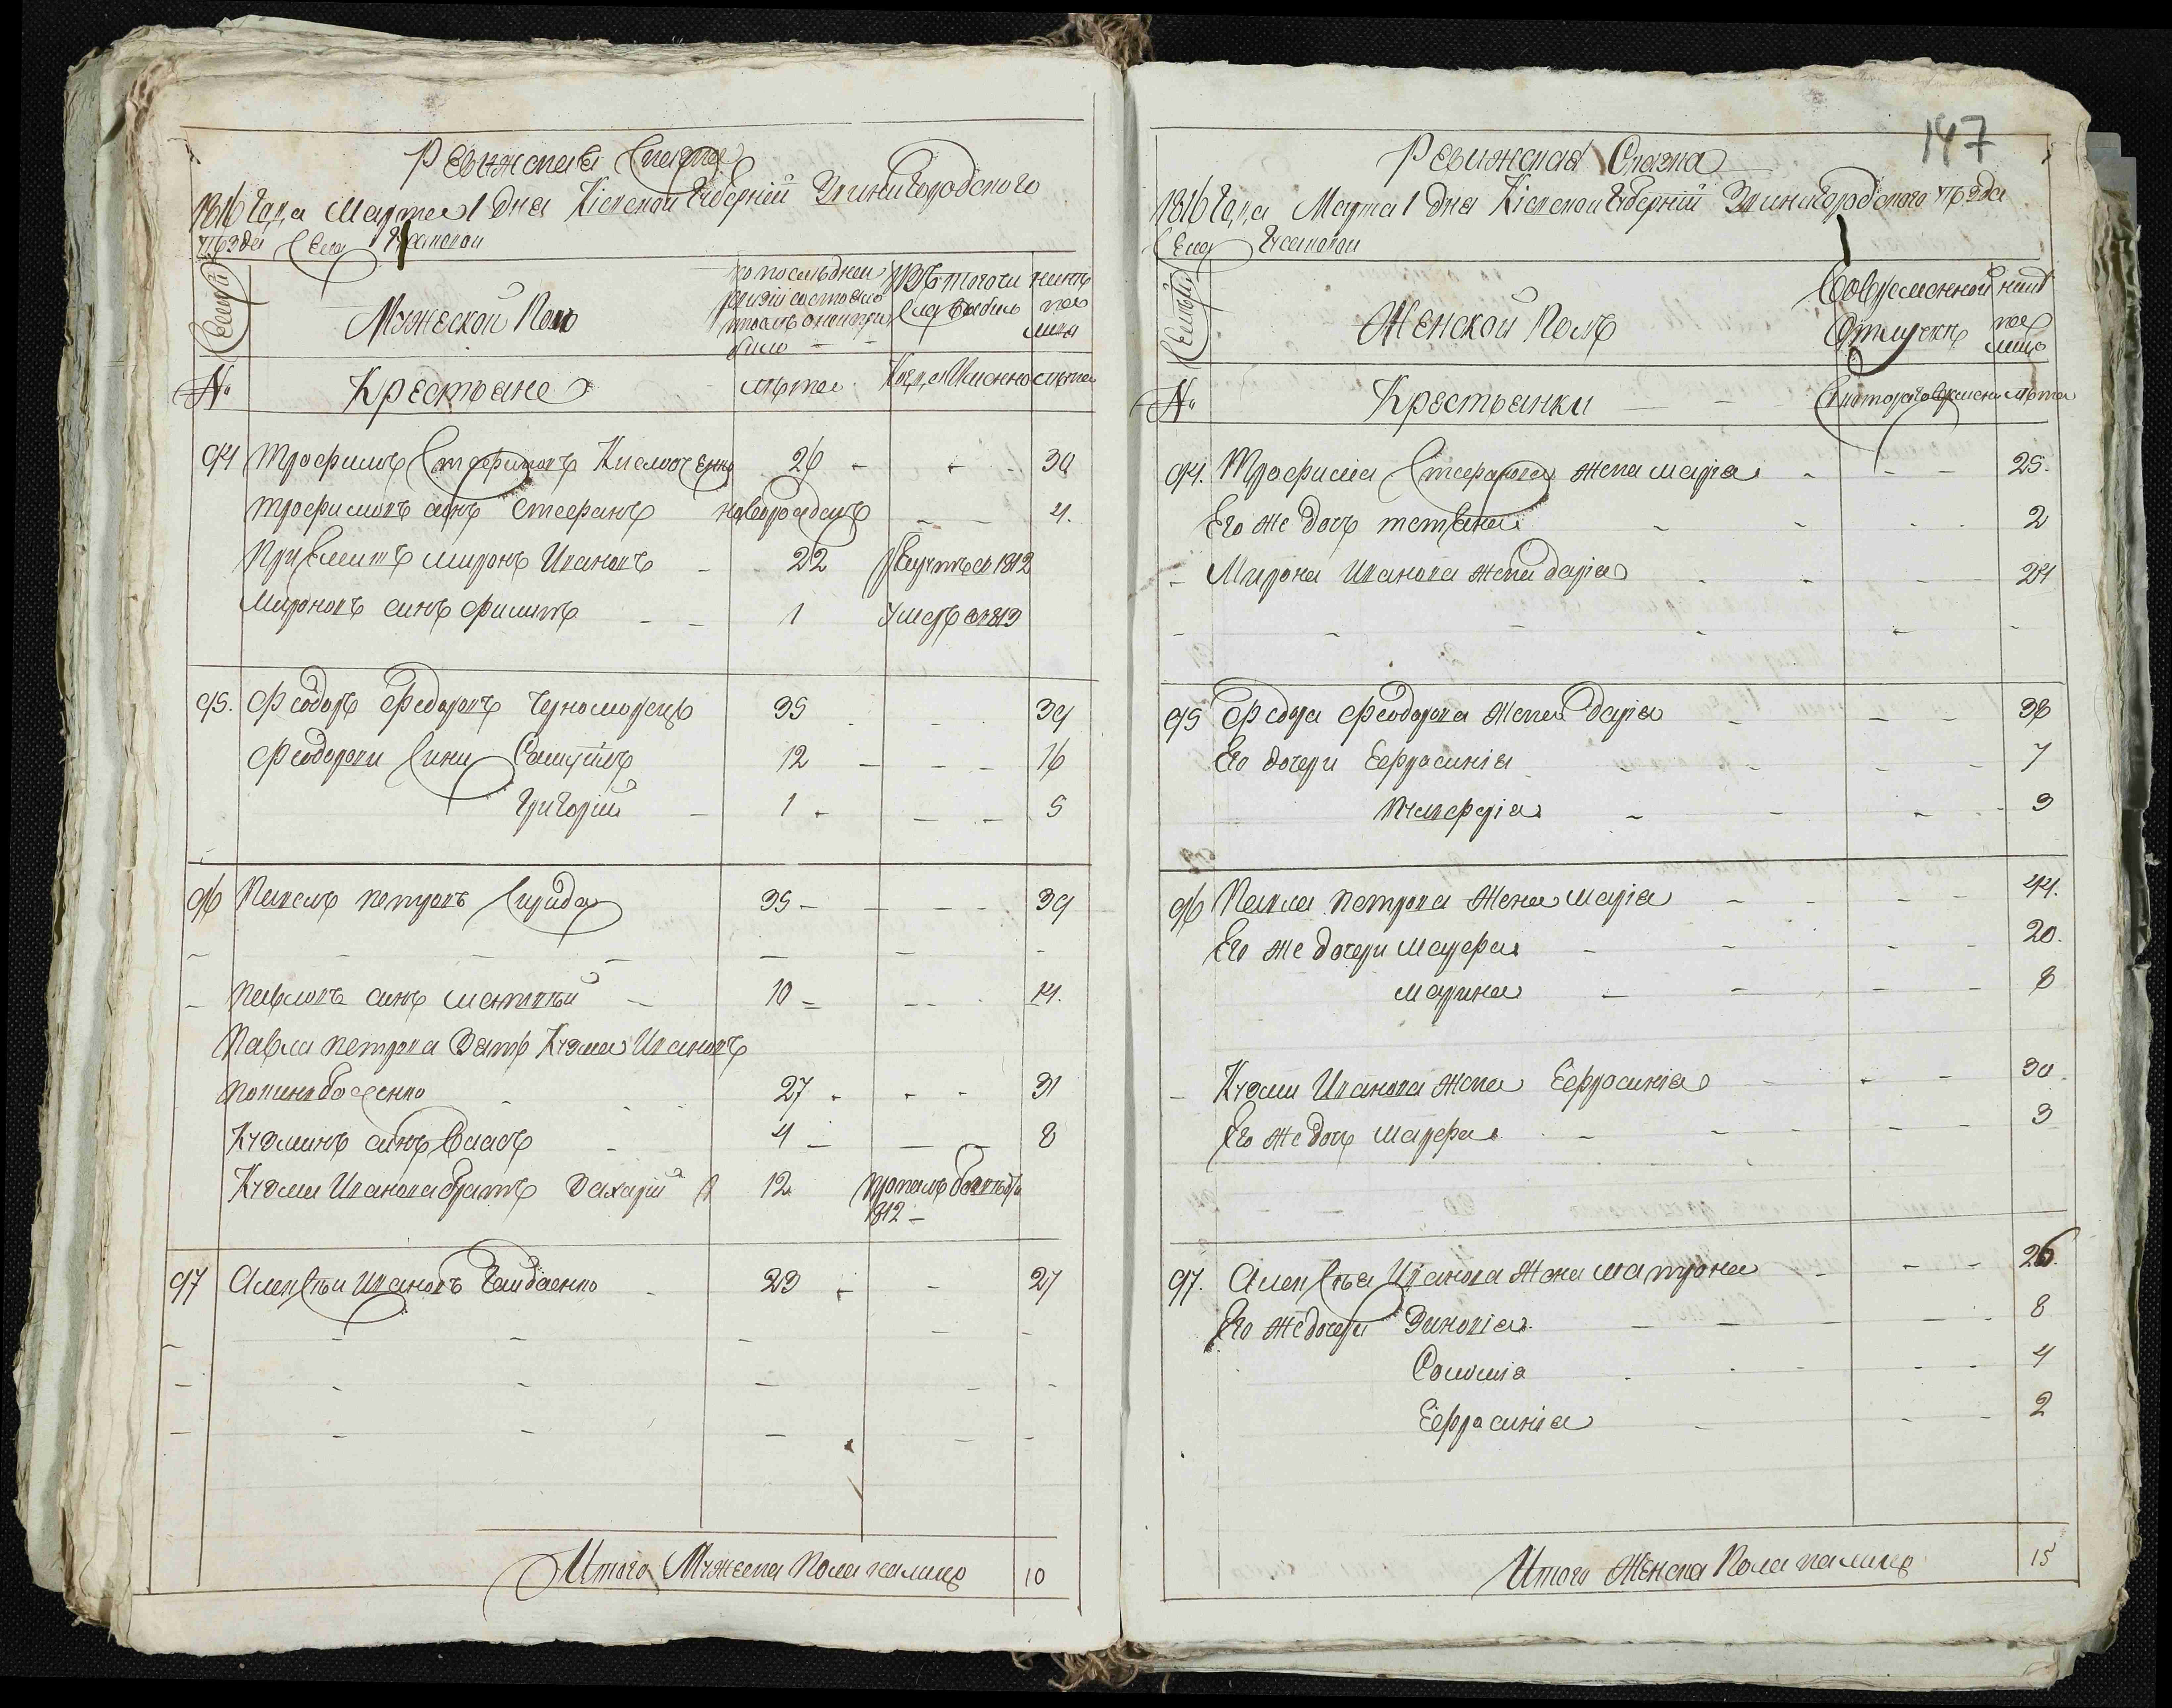 Ревижская Сказка
1816 Года Марта 1 дня Кіевской Губерніи Звинигородского
уѣзда Села
Семьи
Мужеской Полъ
по последнеи ревизіи состояло и после оной прибыло
Изъ того числа выбыло
нинѣ на лицо
№
Крестьяне
лѣта
Когда Именно
лѣта
94 Трофимъ Стефановъ 26 - - 30
Трофимовъ синъ Стефанъ новорожденъ - - 4.
Миронъ Ивановъ - 22 1812
Мироновъ синъ Филипъ - - 1 Умеръ 1813
95. Феодоръ Федоровъ Черноморецъ 35 - - 39
Феодорови Сини Самуйлъ 12 - - - 16
Григорій - 1 - - - 5
96 Павелъ Петровъ Свирида 35 - - - - 39
Павловъ синъ Матвѣй - 10 - - - - 14.
Павла Петрова Зять Кузма Ивановъ
27 - - - 31
Кузминъ синъ Власъ - 4 - - - 8
Кузми Иванова братъ Захарій 12 1812 -
97 Алексѣй Ивановъ Гайдаенко - 23 - - 27
Итого Мужеска Пола налицо 10
147
Ревижская Сказка
1816 Года Марта 1 дня Кіевской Губерніи Звинигородского уѣзда
Села
Семьи
Женской Полъ
Во временной отлучкѣ
нинѣ на лицо
№
Крестьянки - -
Съ которого Времени
лѣта
94. Трофима Стефанова жена Марія - - - 25.
Его же дочь Тетяна - - - - 2
- Мирона Иванова жена Дарія - - - 24
95 Федора Феодорова Жена Дарія - - - 38
Его дочери Ефросинія - - - - 7
Пулхерія - - - - 3
96 Павла Петрова Жена Марія - - - - 44.
Его же дочери Марфа - - - - 20.
Марина - - - - - 8
- Кузми Иванова жена Ефросинія - - - 30
Его же дочь Марфа - - - - - 3
97. Алексѣя Иванова Жена Матрона - - - 26.
Его же дочери Зиновія - - - - - 8
Соломія - - - - 4
Ефросинія - - - 2
Итого Женска Пола налицо 15